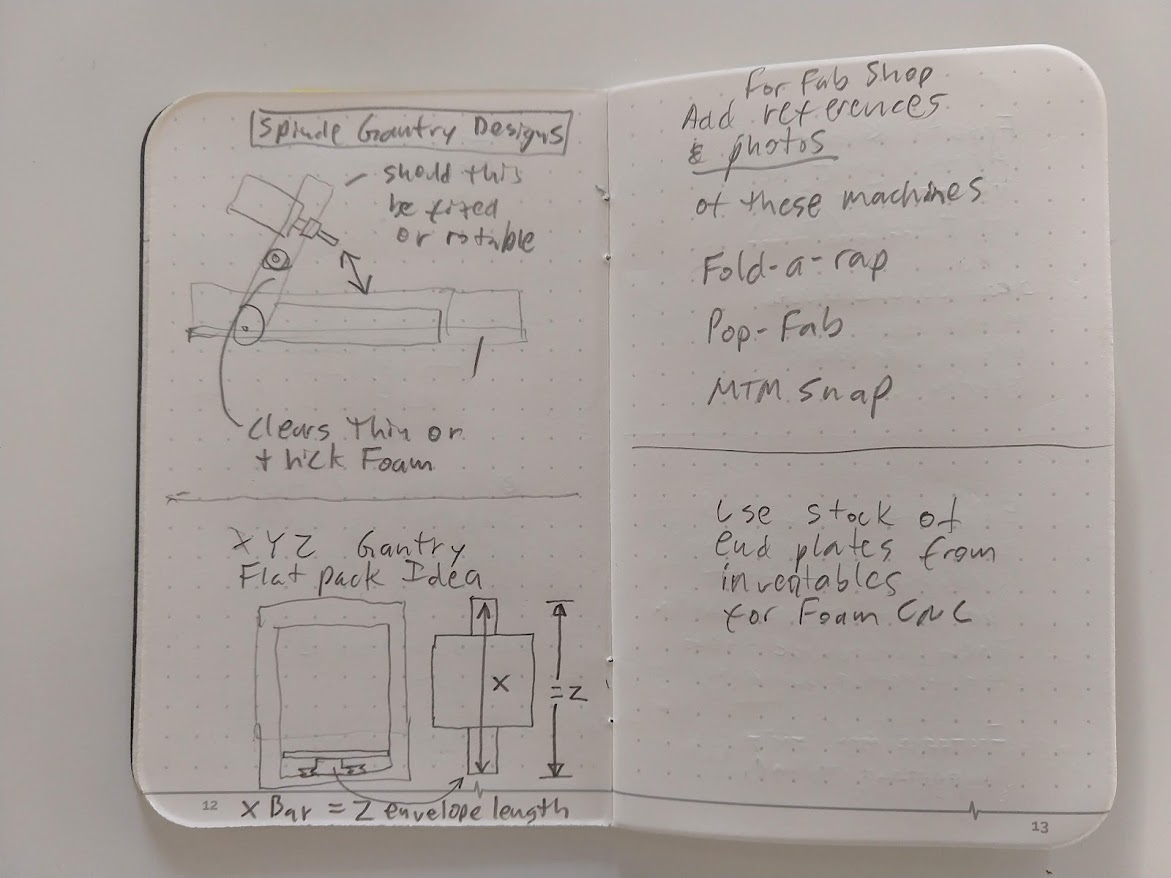 Spindle Gantry Designs
should this
be fixed
or rotable
clears thin or
thick Foam
XYZ Gantry
Flat pack Idea
X
= Z
12
X Bar = Z envelope length
For Fab Shop
Add references
& photos
of these machines
Fold-a-rap
Pop-Fab
MTM Snap
Use stock of
end plates from
inventables
for Foam CNC
13